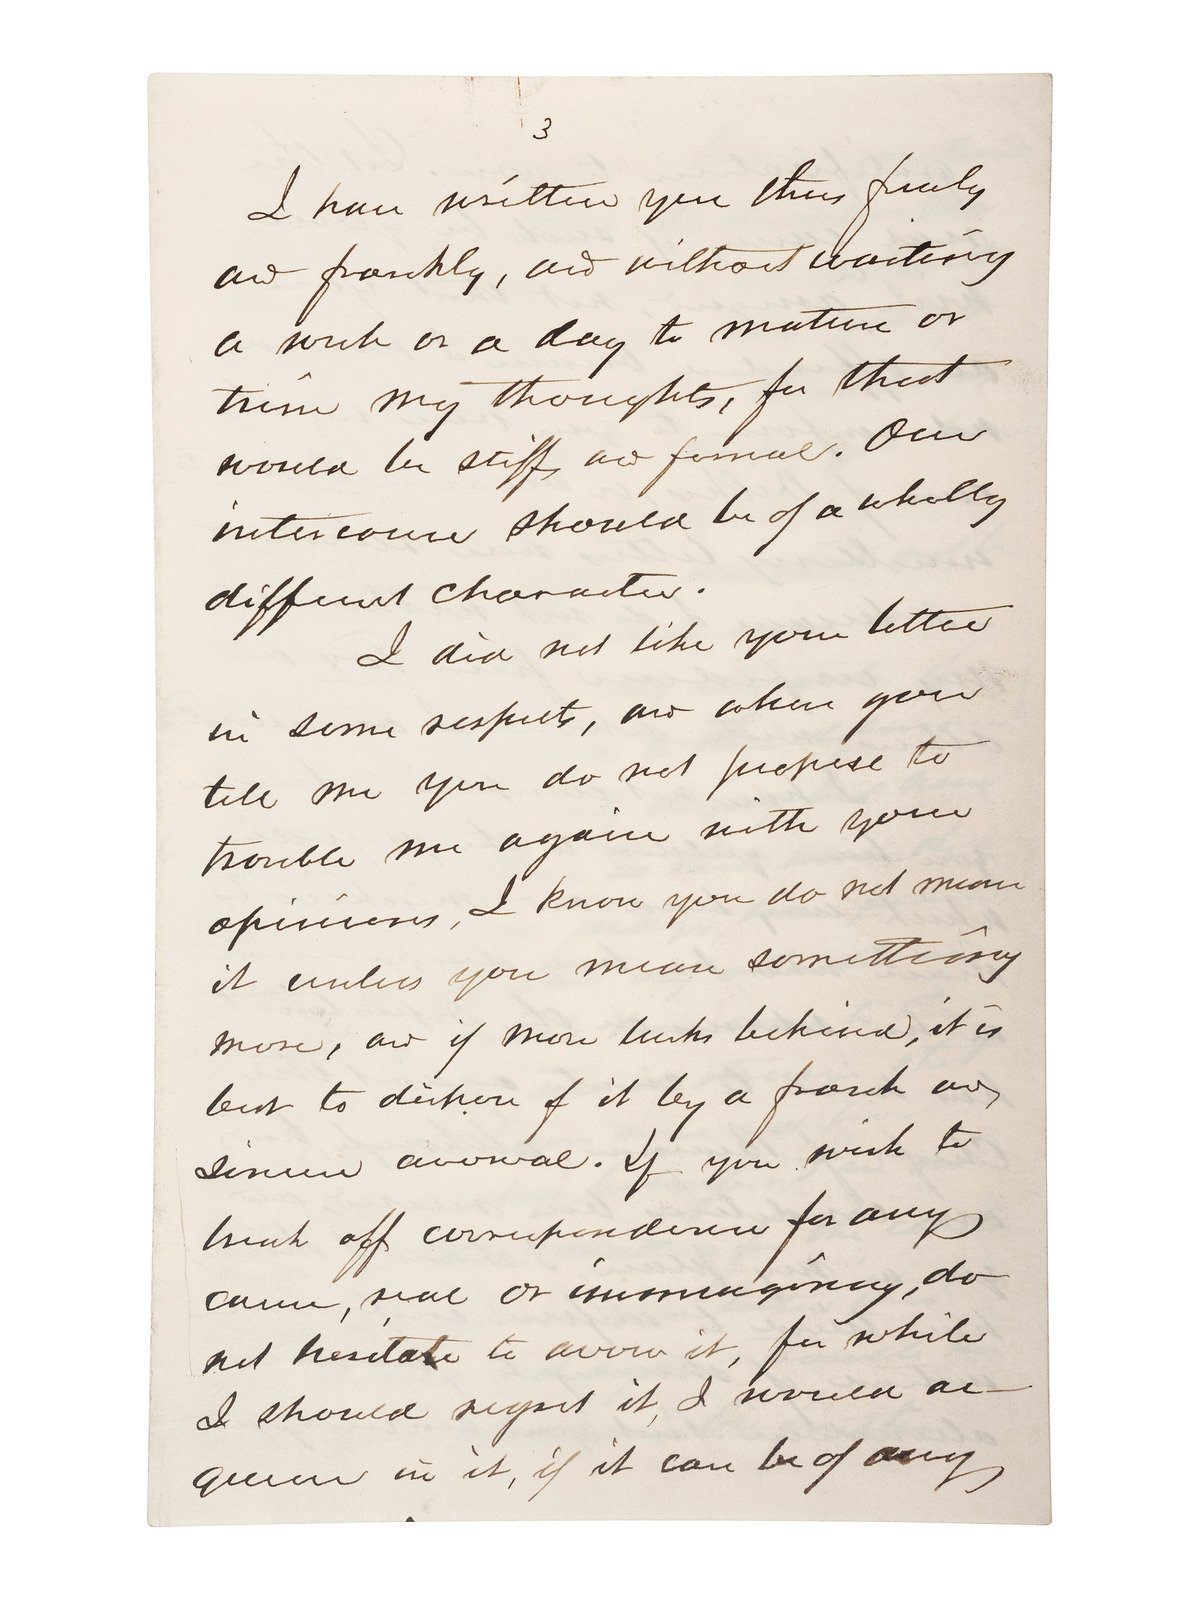 3
I have written you thus freely
and frankly, and without waiting
a week or a day to mature or
trim my thoughts, for that
would be stiff and formal. Our
intercourse should be of a wholly
different character.
I did not like your letter
in some respects, and when you
tell me you do not propose to
trouble me again with your
opinions, I know you do not mean
it unless you mean something
more, and if more lurks behind, it is
best to dispose of it by a frank and
sincere avowal. If you wish to
break off correspondence for any
cause, real or immaginary, do
not hesitate to avow it, for while
I should regret it, I would ac-
quiesce in it, if it can be of any